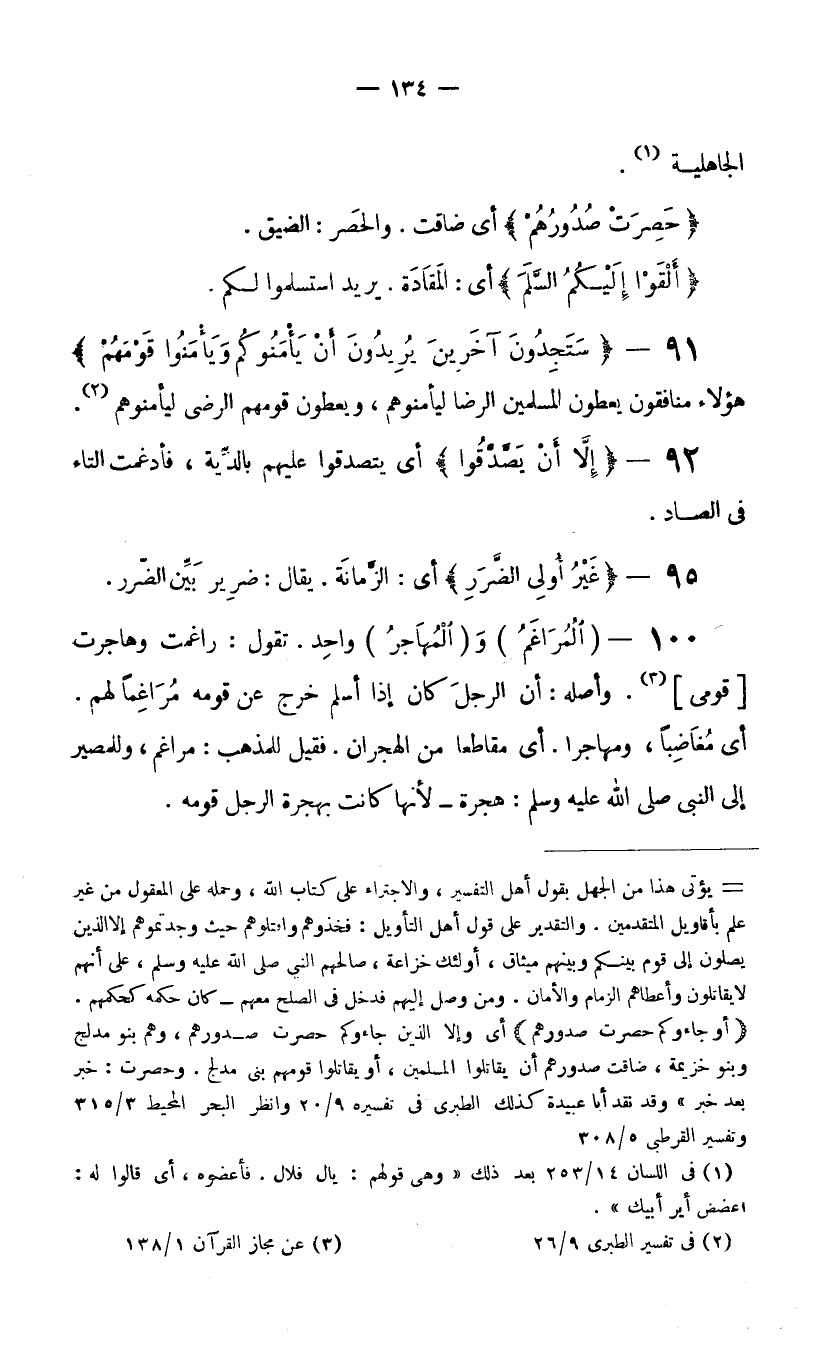 — ١٣٤ —
الجاهليـة (١) .
﴿ حَصِرَتْ صُدُورُهُمْ ﴾ أى ضاقت . والحَصر : الضيق .
﴿ أَلْقَوْا إِلَيْكُمُ السَّلَمَ ﴾ أى : المَقَادَة . يريد استسلموا لكم .
٩١ — ﴿ سَتَجِدُونَ آخَرِينَ يُرِيدُونَ أَنْ يَأْمَنُوكُمْ وَيَأْمَنُوا قَوْمَهُمْ ﴾
هؤلاء منافقون يعطون المسلمين الرضا ليأمنوهم ، ويعطون قومهم الرضى ليأمنوهم (٢) .
٩٢ — ﴿ إِلَّا أَنْ يَصَّدَّقُوا ﴾ أى يتصدقوا عليهم بالدِّية ، فأدغمت التاء
فى الصـاد .
٩٥ — ﴿ غَيْرُ أُولِى الضَّرَرِ ﴾ أى : الزَّمانَة . يقال : ضرير بَيِّن الضّرر .
١٠٠ — ( الْمُرَاغَمُ ) وَ ( الْمُهَاجَرُ ) واحِد . تقول : راغمت وهاجرت
[ قومى ] (٣) . وأصله : أن الرجلَ كان إذا أسلم خرج عن قومه مُرَاغِماً لهم .
أى مُغَاضِباً ، ومهاجرا . أى مقاطعا من الهجران . فقيل للمذهب : مراغم ، وللمصير
إلى النبى صلى الله عليه وسلم : هجرة ــ لأنها كانت بهجرة الرجل قومه .
= يؤتى هذا من الجهل بقول أهل التفسير ، والاجتراء على كتاب الله ، وحمله على المعقول من غير
علم بأقاويل المتقدمين . والتقدير على قول أهل التأويل : فخذوهم واقتلوهم حيث وجدتموهم إلا الذين
يصلون إلى قوم بينكم وبينهم ميثاق ، أولئك خزاعة ، صالحهم النبي صلى الله عليه وسلم ، على أنهم
لايقاتلون وأعطاهم الزمام والأمان . ومن وصل إليهم فدخل فى الصلح معهم ــ كان حكمه كحكمهم .
﴿ أو جاءوكم حصرت صدورهم ﴾ أى وإلا الذين جاءوكم حصرت صـدورهم ، وهم بنو مدلج
وبنو خزيمة ، ضاقت صدورهم أن يقاتلوا المسلمين ، أو يقاتلوا قومهم بنى مدلج . وحصرت : خبر
بعد خبر » وقد نقد أبا عبيدة كذلك الطبرى فى تفسيره ٢٠/٩ وانظر البحر المحيط ٣١٥/٣
وتفسير القرطبى ٣٠٨/٥
(١) فى اللسان ٢٥٣/١٤ بعد ذلك « وهى قولهم : يال فلال . فأعضوه ، أى قالوا له :
اعضض أير أبيك » .
(٢) فى تفسير الطبرى ٢٦/٩ (٣) عن مجاز القرآن ١٣٨/١